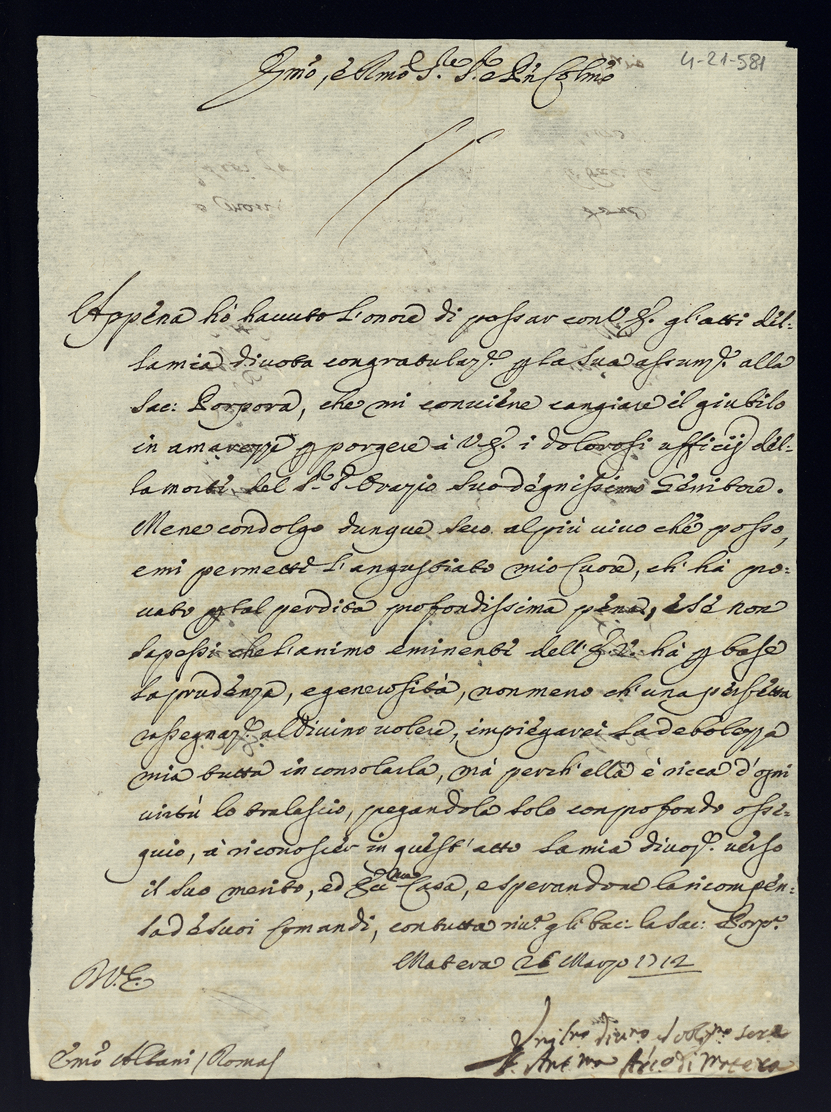 4-21-581
Em̃o, e Rm̃o Sr̃e Sr̃e Pñ Colm̃o
Appena hò havuto l'onore di passar con V. E. gl'atti del-
la mia divota congratulaz.e p la sua assunz.e alla
Sac: Porpora, che mi conviene cangiare il giubilo
in amarezza p porgere à V. E. i dolorosi ufficij del-
la morte del Sr. D. Orazio suo degnissimo Genitore.
Mene condolgo dunque seco al più vivo che posso,
e mi permette l'angustiato mio Cuore, ch'hà pro-
vato p tal perdita profondissima pena, e se non
sapessi che l'animo eminente dell'E. V. hà p base
la prudenza, e generosità, non meno ch'una perfetta
rassegnaz.e al Divino volere, impiegarei la debolezza
mia tutta in consolarla, mà perch'ella è ricca d'ogni
virtù lo tralascio, pregandola solo con profondo osse-
quio, à riconoscer in quest'atto la mia divoz.e verso
il suo merito, ed Ecc.ma Casa, e sperandone la ricompen-
sa de suoi Comandi, con tutta riv.a gli bac: la Sac: Porp.a
Matera 26 Marzo 1712
D V. E.
divmo ser.e
Em̃o Albani / Roma /
Ant. Ma Arc.o di Matera